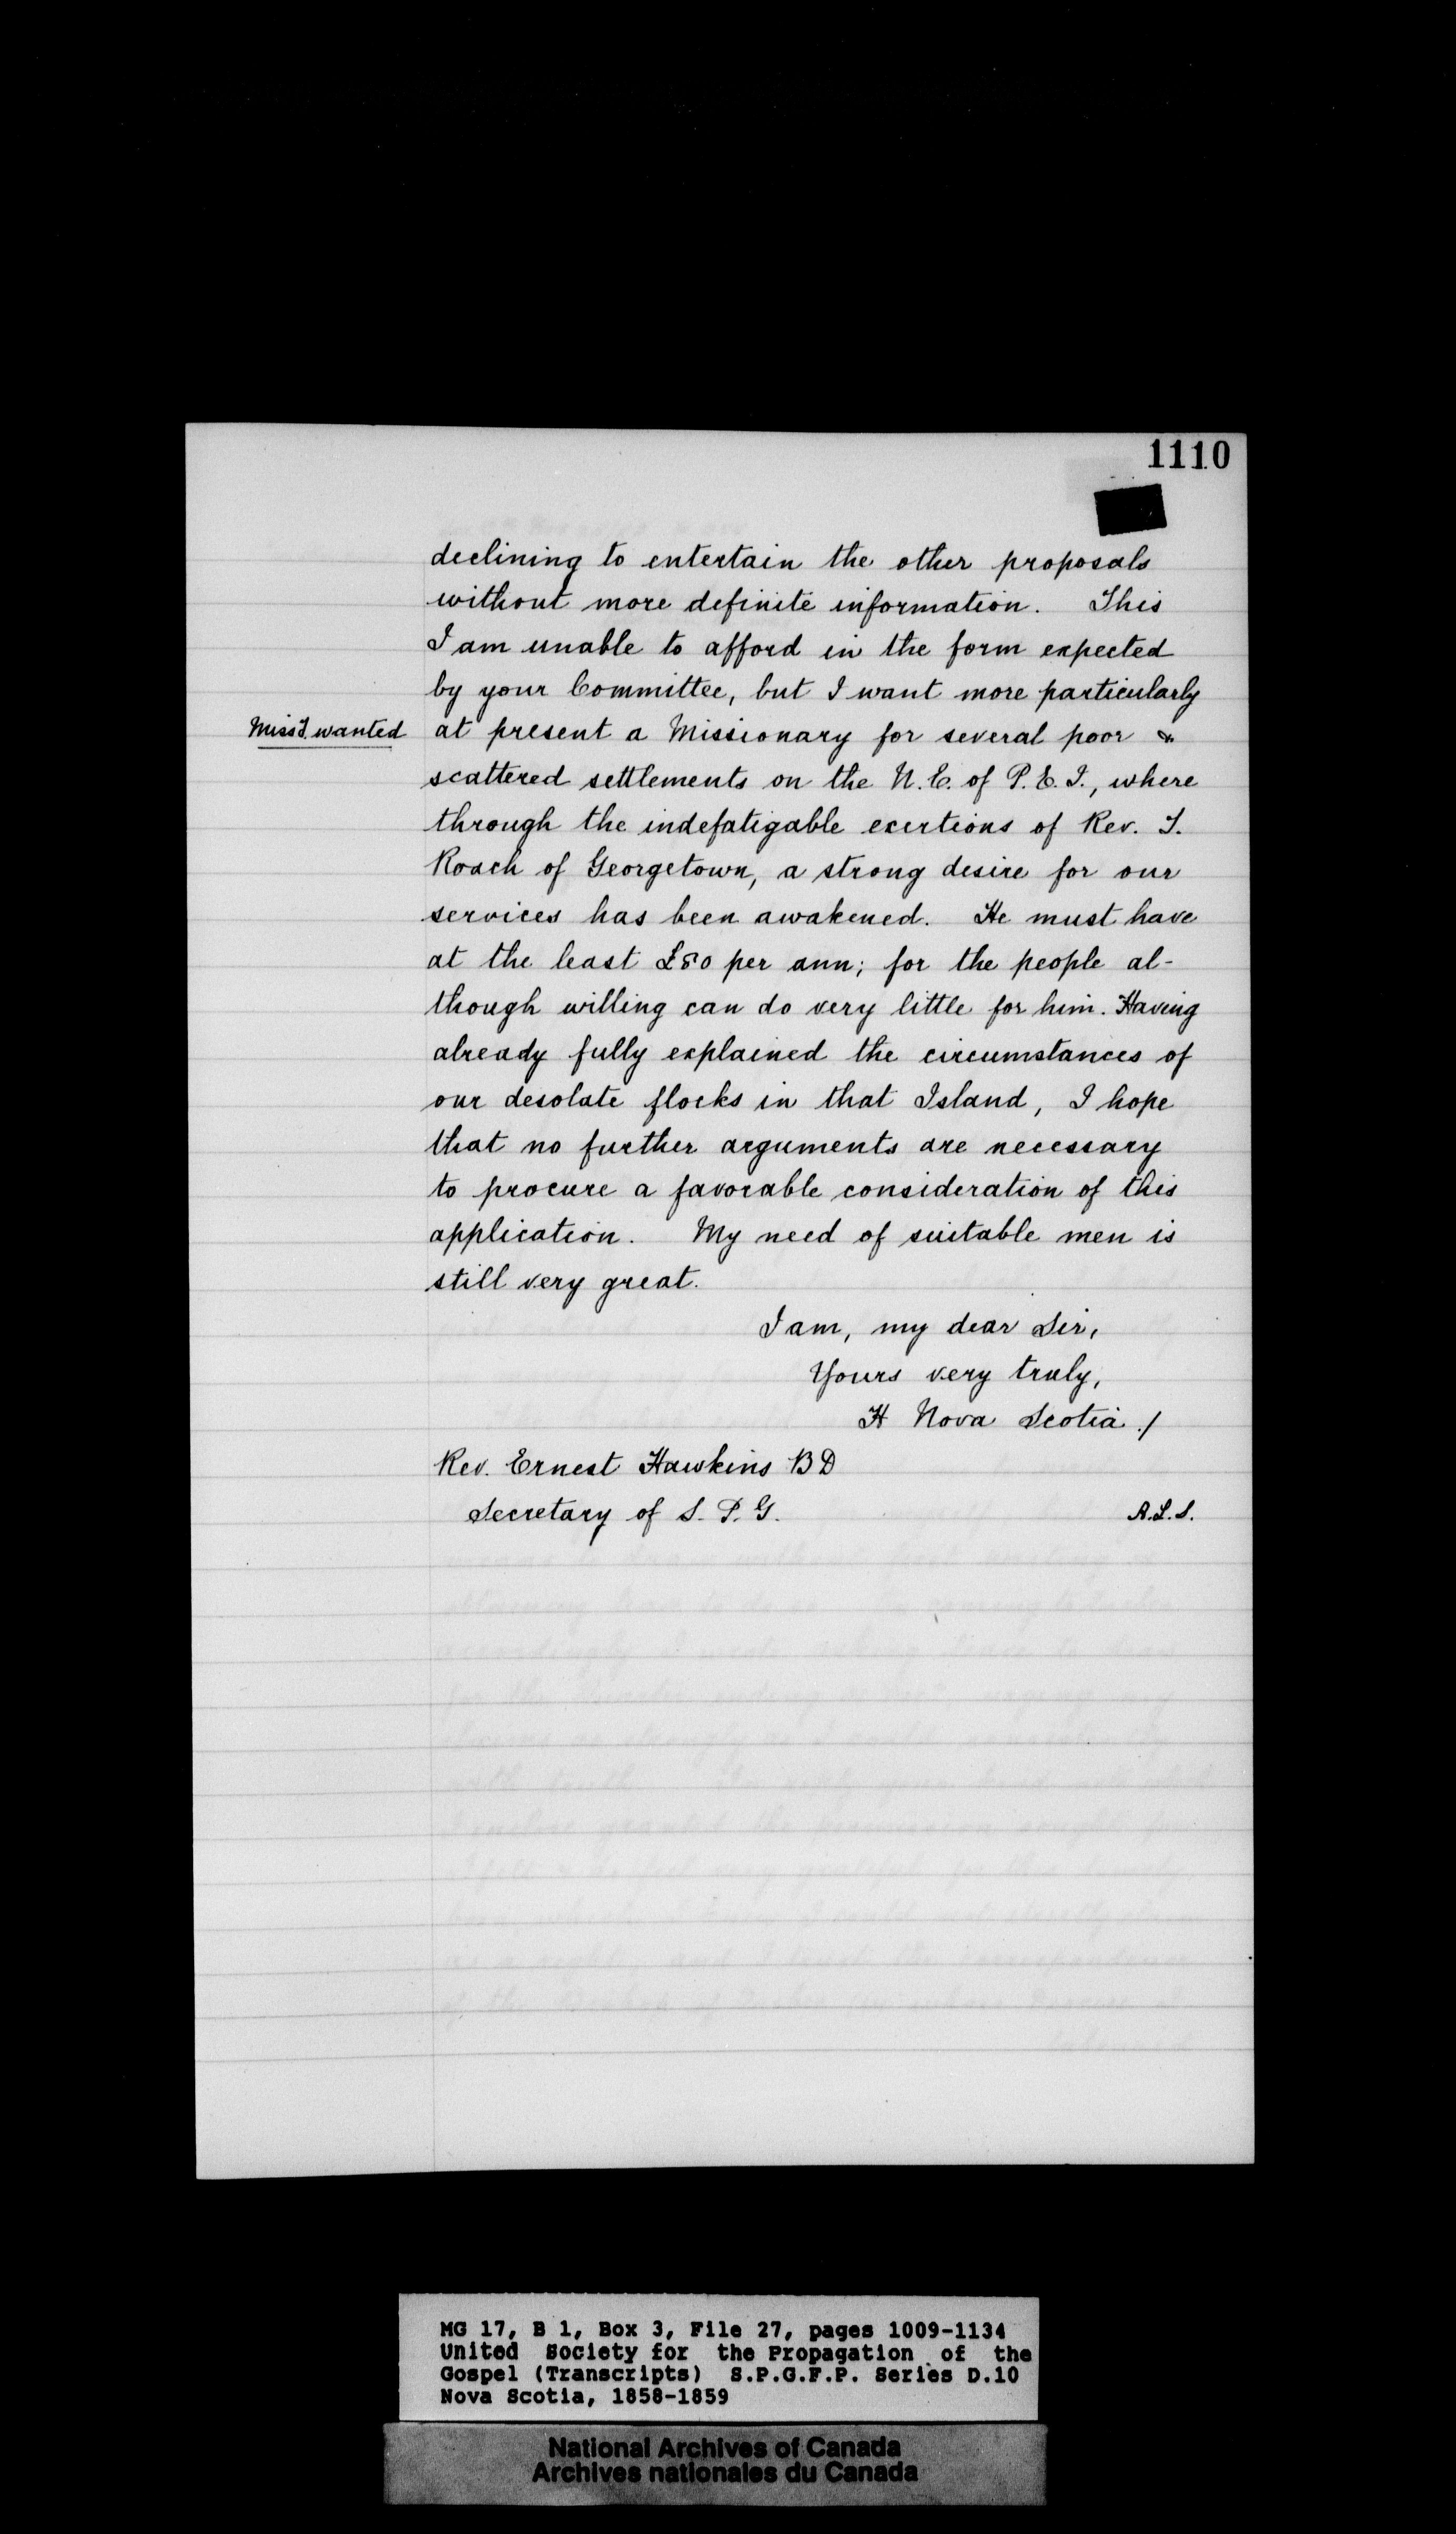 1110
declining to entertain the other proposals
without more definite information. This
I am unable to afford in the form expected
by your Committee, but I want more particularly
Miss'y. wanted
at present a Missionary for several poor &
scattered settlements on the N. E. of P. E. I., where
through the indefatigable exertions of Rev. T.
Roach of Georgetown, a strong desire for our
services has been awakened. He must have
at the least £80 per ann; for the people al-
though willing can do very little for him. Having
already fully explained the circumstances of
our desolate flocks in that Island, I hope
that no further arguments are necessary
to procure a favorable consideration of this
application. My need of suitable men is
still very great.
I am, my dear Sir,
Yours very truly,
H Nova Scotia /
Rev. Ernest Hawkins B D
Secretary of S. P. G.
A.L.S.
MG 17, B 1, Box 3, File 27, pages 1009-1134
United Society for the Propagation of the
Gospel (Transcripts) S.P.G.F.P. Series D.10
Nova Scotia, 1858-1859
National Archives of Canada
Archives nationales du Canada